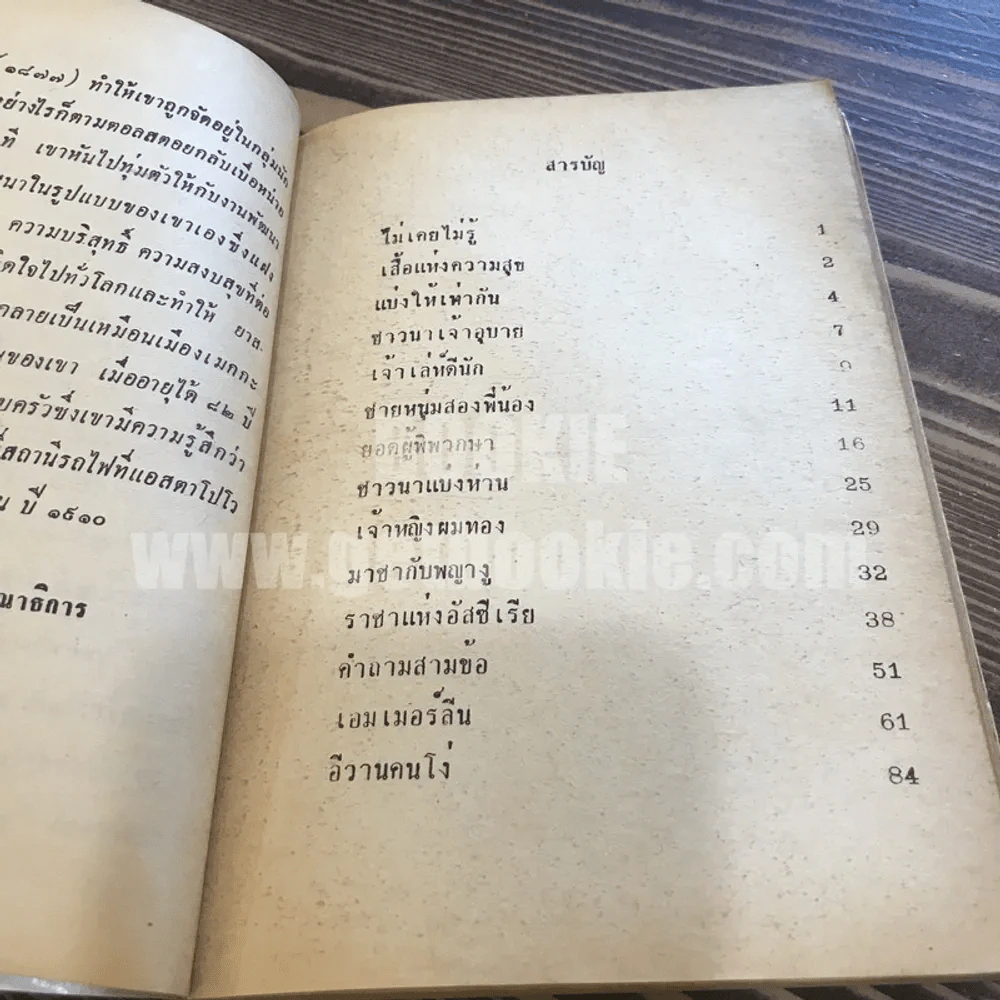 (๑๘๗๗) ทำให้เขาถูกจัดอยู่ในกลุ่มนัก
อย่างไรก็ตามตอลสตอยกลับเบื่อหน่าย
ที่ เขาหันไปทุ่มตัวให้กับงานพัฒนา
นาในรูปแบบของเขาเองซึ่งแฝง
ความบริสุทธิ์ ความสงบสุขที่ต่อ
ิตใจไปทั่วโลกและทำให้ ยาส-
คลายเป็นเหมือนเมืองเมกกะ
ของเขา เมื่ออายุได้ ๘๒ ปี
บครัวซึ่งเขามีความรู้สึกว่า
ี่สถานีรถไฟที่แอสตาโปโว
น ปี ๑๙๑๐
ณาธิการ
สารบัญ
ไม่เคยไม่รู้ 1
เสื้อแห่งความสุข 2
แบ่งให้เท่ากัน 4
ชาวนาเจ้าอุบาย 7
เจ้าเล่ห์ดีนัก 9
ชายหนุ่มสองพี่น้อง 11
ยอดผู้พิพากษา 16
ชาวนาแบ่งห่าน 25
เจ้าหญิงผมทอง 29
มาชากับพญางู 32
ราชาแห่งอัสซีเรีย 38
คำถามสามข้อ 51
เอมเมอร์ลีน 61
อีวานคนโง่ 84